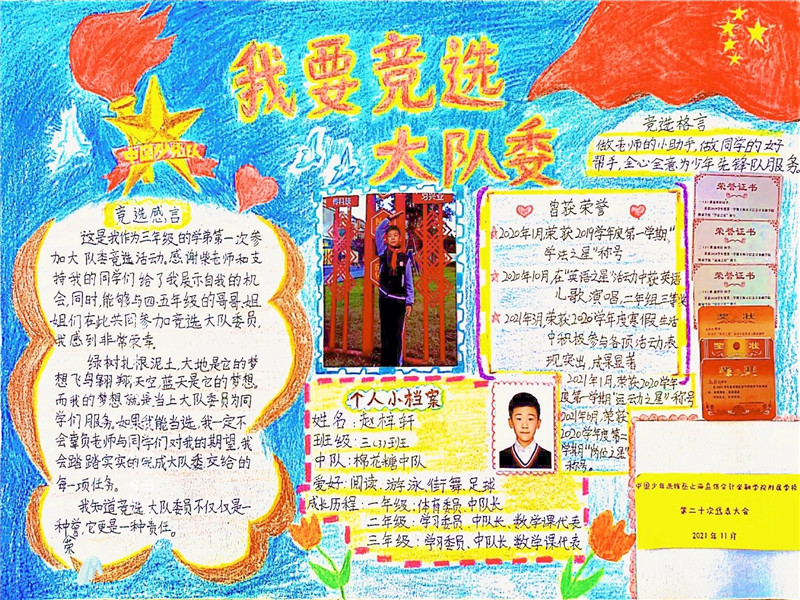 我要竞选
大队委
中国少先队
竞选感言
这是我作为三年级的学弟第一次参
加大队委竞选活动,感谢柴老师和支
持我的同学们给了我展示自我的机
会,同时,能够与四五年级的哥哥姐
姐们在此共同参加竞选大队委员,
我感到非常荣幸.
绿树扎根泥土,大地是它的梦
想,飞鸟翱翔天空,蓝天是它的梦想.
而我的梦想就是当上大队委员为同
学们服务.如果我能当选,我一定不
会辜负老师与同学们对我的期望,我
会踏踏实实的完成大队委交给的
每一项任务.
我知道竞选大队委员不仅仅是一
种荣
,它更是一种责任.
竞选格言
做老师的小助手,做同学的好
帮手,全心全意为少年先锋队服务.
曾获荣誉
2020年1月荣获2019学年度第一学期"
学佳之星"称号
2020年10月,在"英语之星"活动中获英语
儿歌演唱,二年组三等奖
2021年3月荣获2020学年度寒假生活
中积极参与各项活动表
现突出,成果显著
2021年1月,荣获2020学年
度第一学期"运动之星"称号
荣获
2020学年度第二
学期
称号.
荣誉证书
荣誉证书
荣誉证书
奖状
奖状
个人小档案
姓名:赵梓轩
班级:三(3)班
中队:棉花糖中队
爱好:阅读,游泳,街舞,足球
成长历程:一年级:体育委员,中队长
二年级:学习委员,中队长,数学课代表
三年级:学习委员、中队长,数学课代表
中国少年先锋队上海立信会计金融学院附属学校
第二十次代表大会
2021年11月